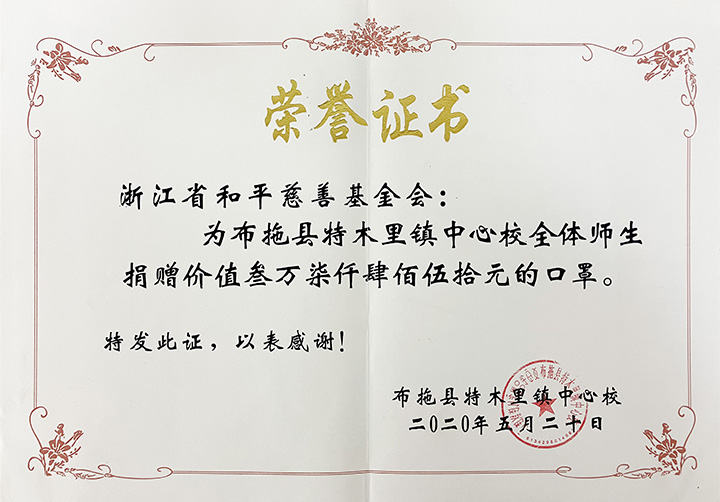 荣誉证书
浙江省和平慈善基金会：
为布拖县特木里镇中心校全体师生
捐赠价值叁万柒仟肆佰伍拾元的口罩。
特发此证，以表感谢！
布拖县特木里镇中心校
二〇二〇年五月二十日